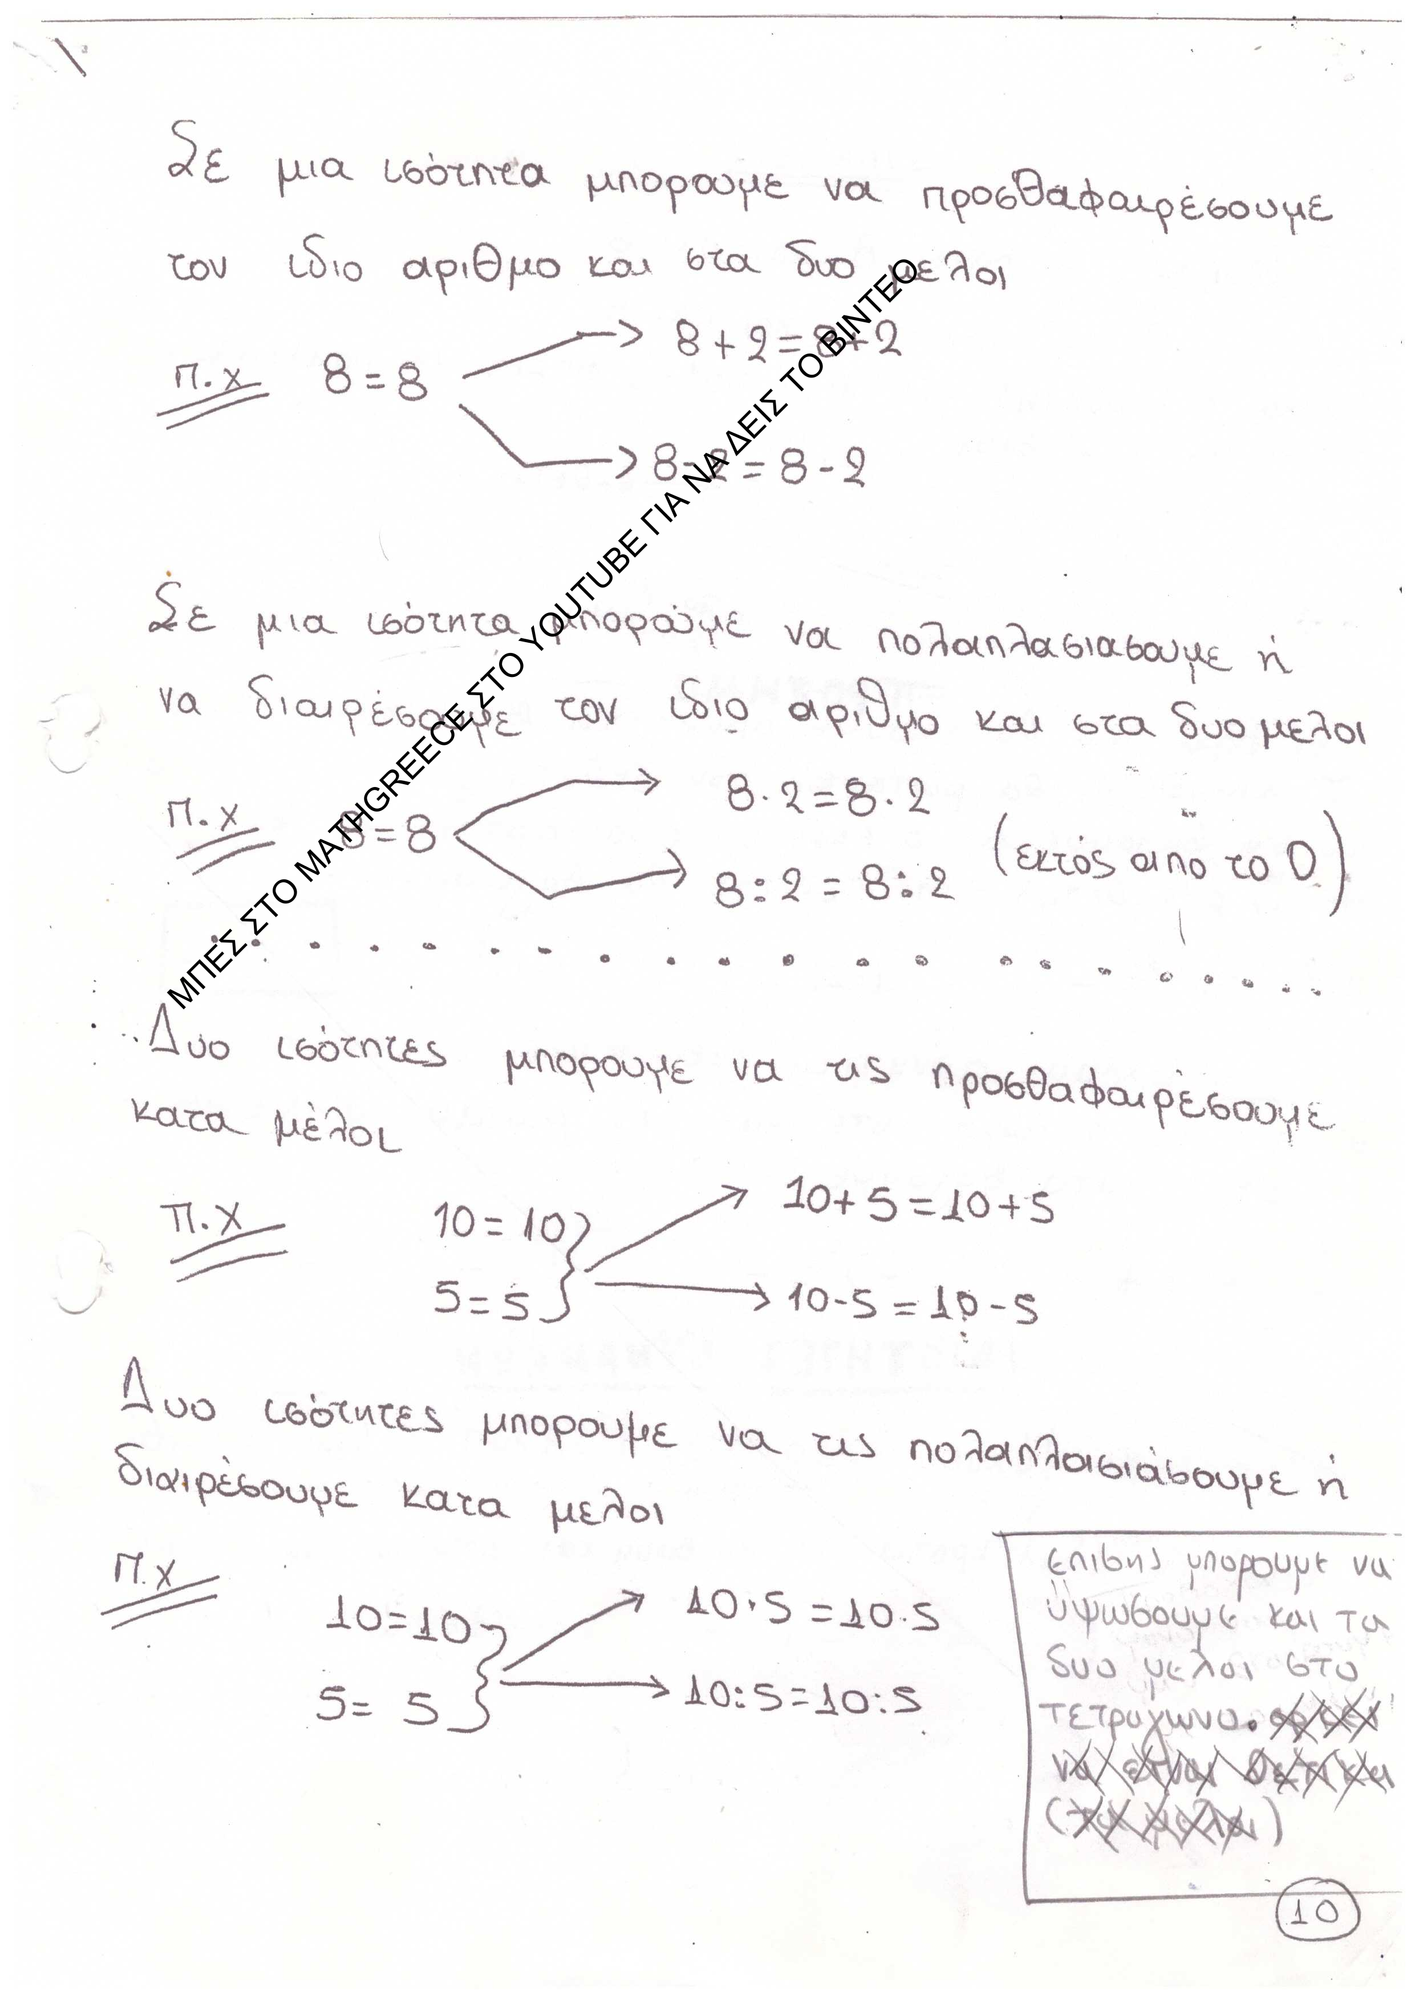 Σε μια ισότητα μπορουμε να προσθαφαιρέσουμε
τον ιδιο αριθμο και στα δυο μελοι
π.χ 8=8 8+2=8+2
8-2=8-2
Σε μια ισότητα μπορουμε να πολαπλασιασουμε ή
να διαιρέσουμε τον ιδιο αριθμο και στα δυο μελοι
π.χ 8=8 8·2=8·2
8:2=8:2 (εκτός απο το 0)
ΜΠΕΣ ΣΤΟ MATHGREECE ΣΤΟ YOUTUBE ΓΙΑ ΝΑ ΔΕΙΣ ΤΟ ΒΙΝΤΕΟ
Δυο ισότητες μπορουμε να τις προσθαφαιρέσουμε
κατα μέλοι
π.χ 10=10 10+5=10+5
5=5 10-5=10-5
Δυο ισότητες μπορουμε να τις πολαπλασιάσουμε ή
διαιρέσουμε κατα μελοι
π.χ 10=10 10·5=10·5
5=5 10:5=10:5
επισης μπορουμε να
υψωσουμε και τα
δυο μελοι στο
τετραγωνο.
να ειναι θετικα
(τα μελοι)
10